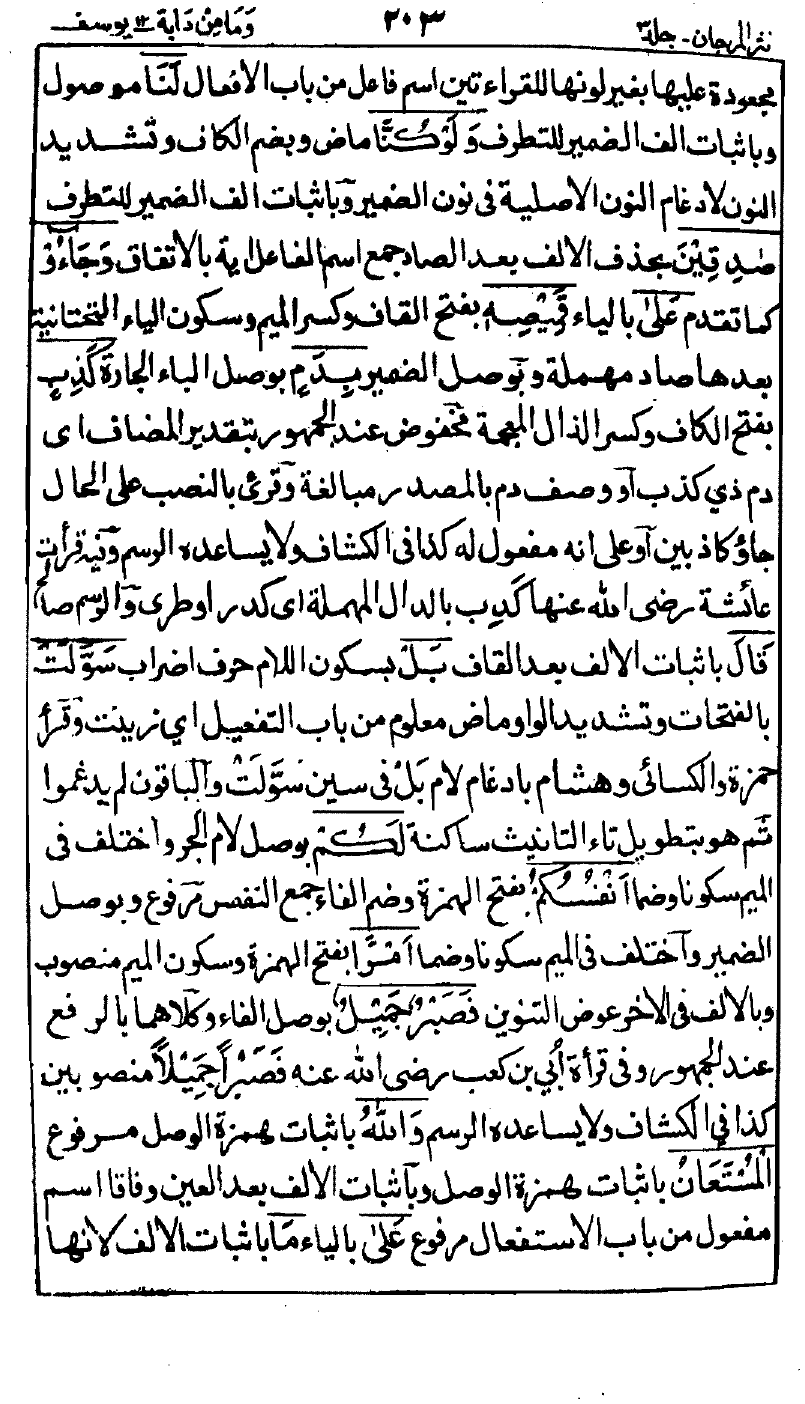 نثر المرجان - جلد ٣
٢٠٣
وَمَا مِنْ دَابَة ١٢ يوسف
مجعودة عليها بغير لونها للقراءتين اسم فاعل من باب الافعال لَنَا موصول
وباثبات الف الضمير للتطرف وَلَوْكُنَّا ماض وبضم الكاف وتشديد
النون لادغام النون الاصلية فى نون الضمير وباثبات الف الضمير للتطرف
صٰدِقِيْنَ بحذف الالف بعد الصاد جمع اسم الفاعل اية بالاتفاق وَجَاءُوْ
كما تقدم عَلَىٰ بالياء قَمِيْصِهٖ بفتح القاف وكسر الميم وسكون الياء التحتانية
بعدها صاد مهملة وبوصل الضمير بِدَمٍ بوصل الباء الجارة كَذِبٍ
بفتح الكاف وكسر الذال المعجمة مخفوض عند الجمهور بتقدير المضاف اى
دم ذي كذب او وصف دم بالمصدر مبالغة وقرئ بالنصب على الحال
جاؤ كاذبين او على انه مفعول له كذا فى الكشاف ولا يساعده الرسم وفيه قرأت
عائشة رضى الله عنها كَدِب بالدال المهملة اى كدر او طرى والرسم صالح
قَالَ باثبات الالف بعد القاف بَلْ بسكون اللام حرف اضراب سَوَّلَتْ
بالفتحات وتشديد الواو ماض معلوم من باب التفعيل اي زينت وقرأ
حمزة والكسائى وهشام بادغام لام بَلْ فى سين سَوَّلَتْ والباقون لم يدغموا
ثم هو بتطويل تاء التانيث ساكنة لَكُمْ بوصل لام الجر واختلف فى
الميم سكونا وضما اَنْفُسُكُمْ بفتح الهمزة وضم الفاء جمع النفس مرفوع وبوصل
الضمير واختلف فى الميم سكونا وضما اَمْرًا بفتح الهمزة وسكون الميم منصوب
وبالالف فى الاخر عوض التنوين فَصَبْرٌ جَمِيْلٌ بوصل الفاء وكلاهما بالرفع
عند الجمهور وفى قرأة اُبي بن كعب رضى الله عنه فَصَبْرًا جَمِيْلًا منصوبين
كذا في الكشاف ولا يساعده الرسم وَاللّٰهُ باثبات همزة الوصل مرفوع
الْمُسْتَعَانُ باثبات همزة الوصل وباثبات الالف بعد العين وفاقا اسم
مفعول من باب الاستفعال مرفوع عَلَىٰ بالياء مَا باثبات الالف لانها